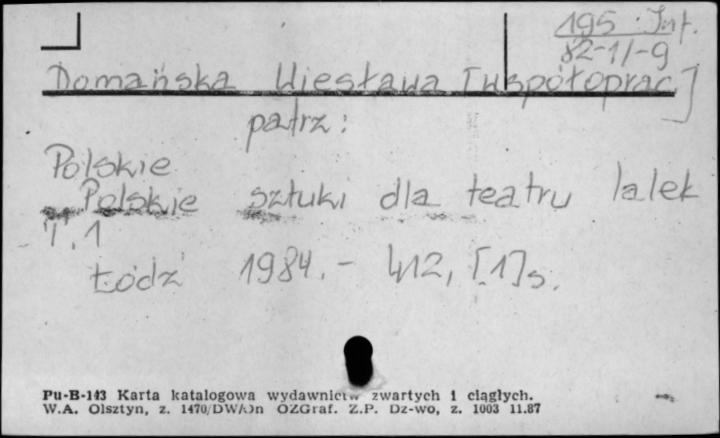 195 Inf.
82-1/-9
Domańska Wiesława [współoprac.]
patrz:
Polskie
Polskie sztuki dla teatru lalek
T. 1
Łódź 1984. - 412, [1] s.
Pu-B-143 Karta katalogowa wydawnictw zwartych i ciągłych.
W.A. Olsztyn, z. 1470/DWA/n OZGraf. Z.P. Dz-wo, z. 1003 11.87